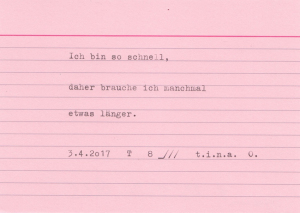 Ich bin so schnell,
daher brauche ich manchmal
etwas länger.
3.4.2o17 T 8 /// t.i.n.a. O.